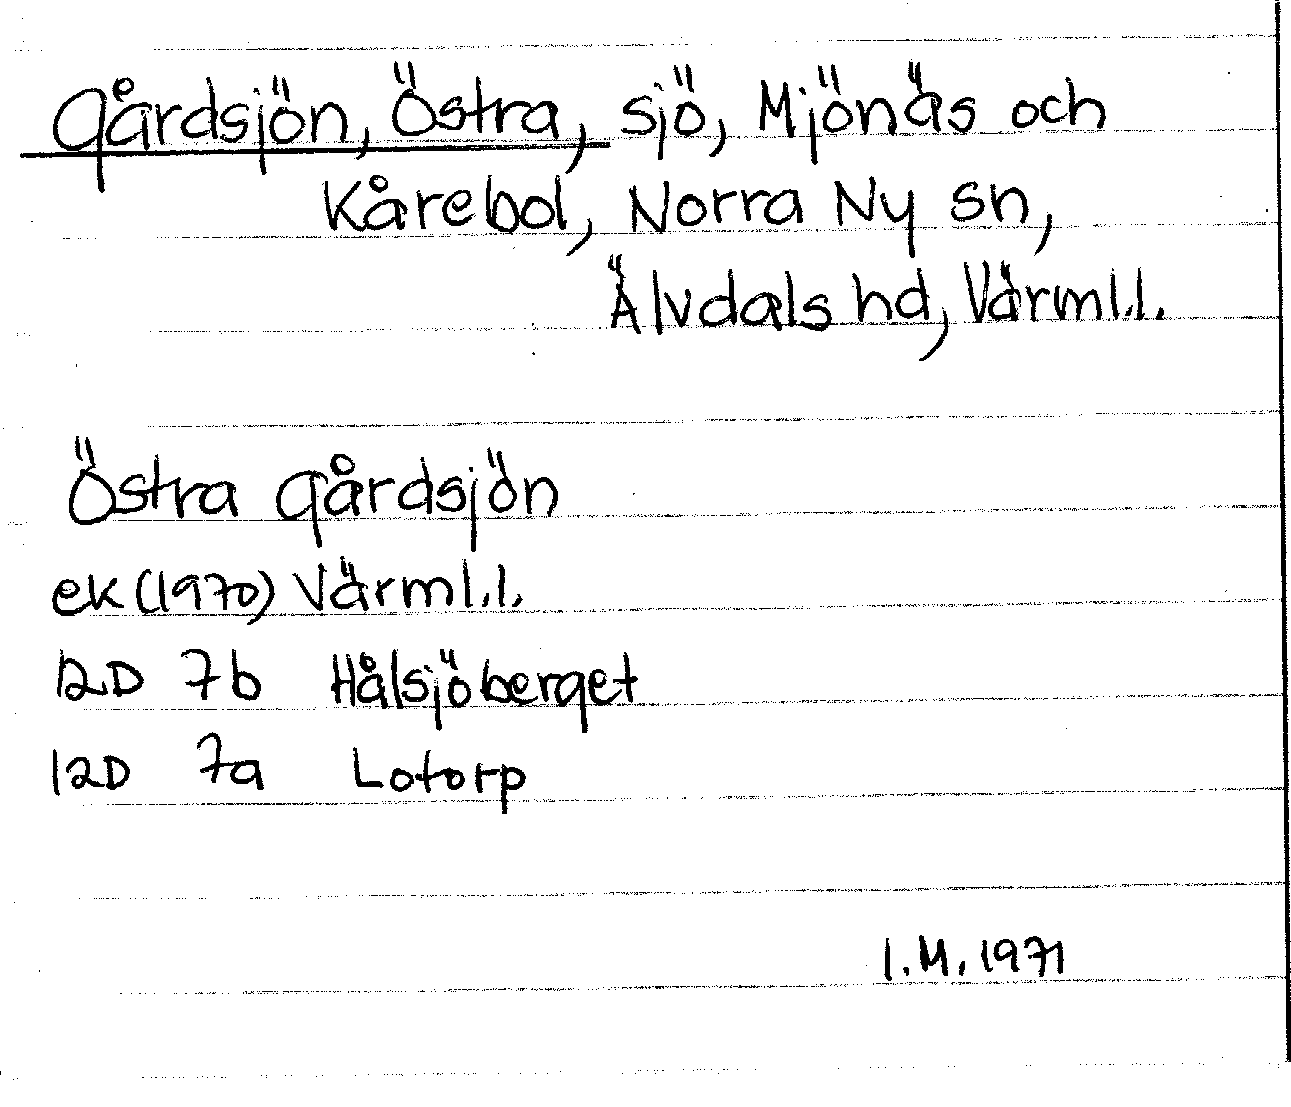 Gårdsjön, Östra, sjö, Mjönäs och
Kårebol, Norra Ny sn,
Älvdals hd, Värml.l.
Östra Gårdsjön
ek (1970) Värml.l.
12D 7b Hålsjöberget
12D 7a Lotorp
I.M. 1971